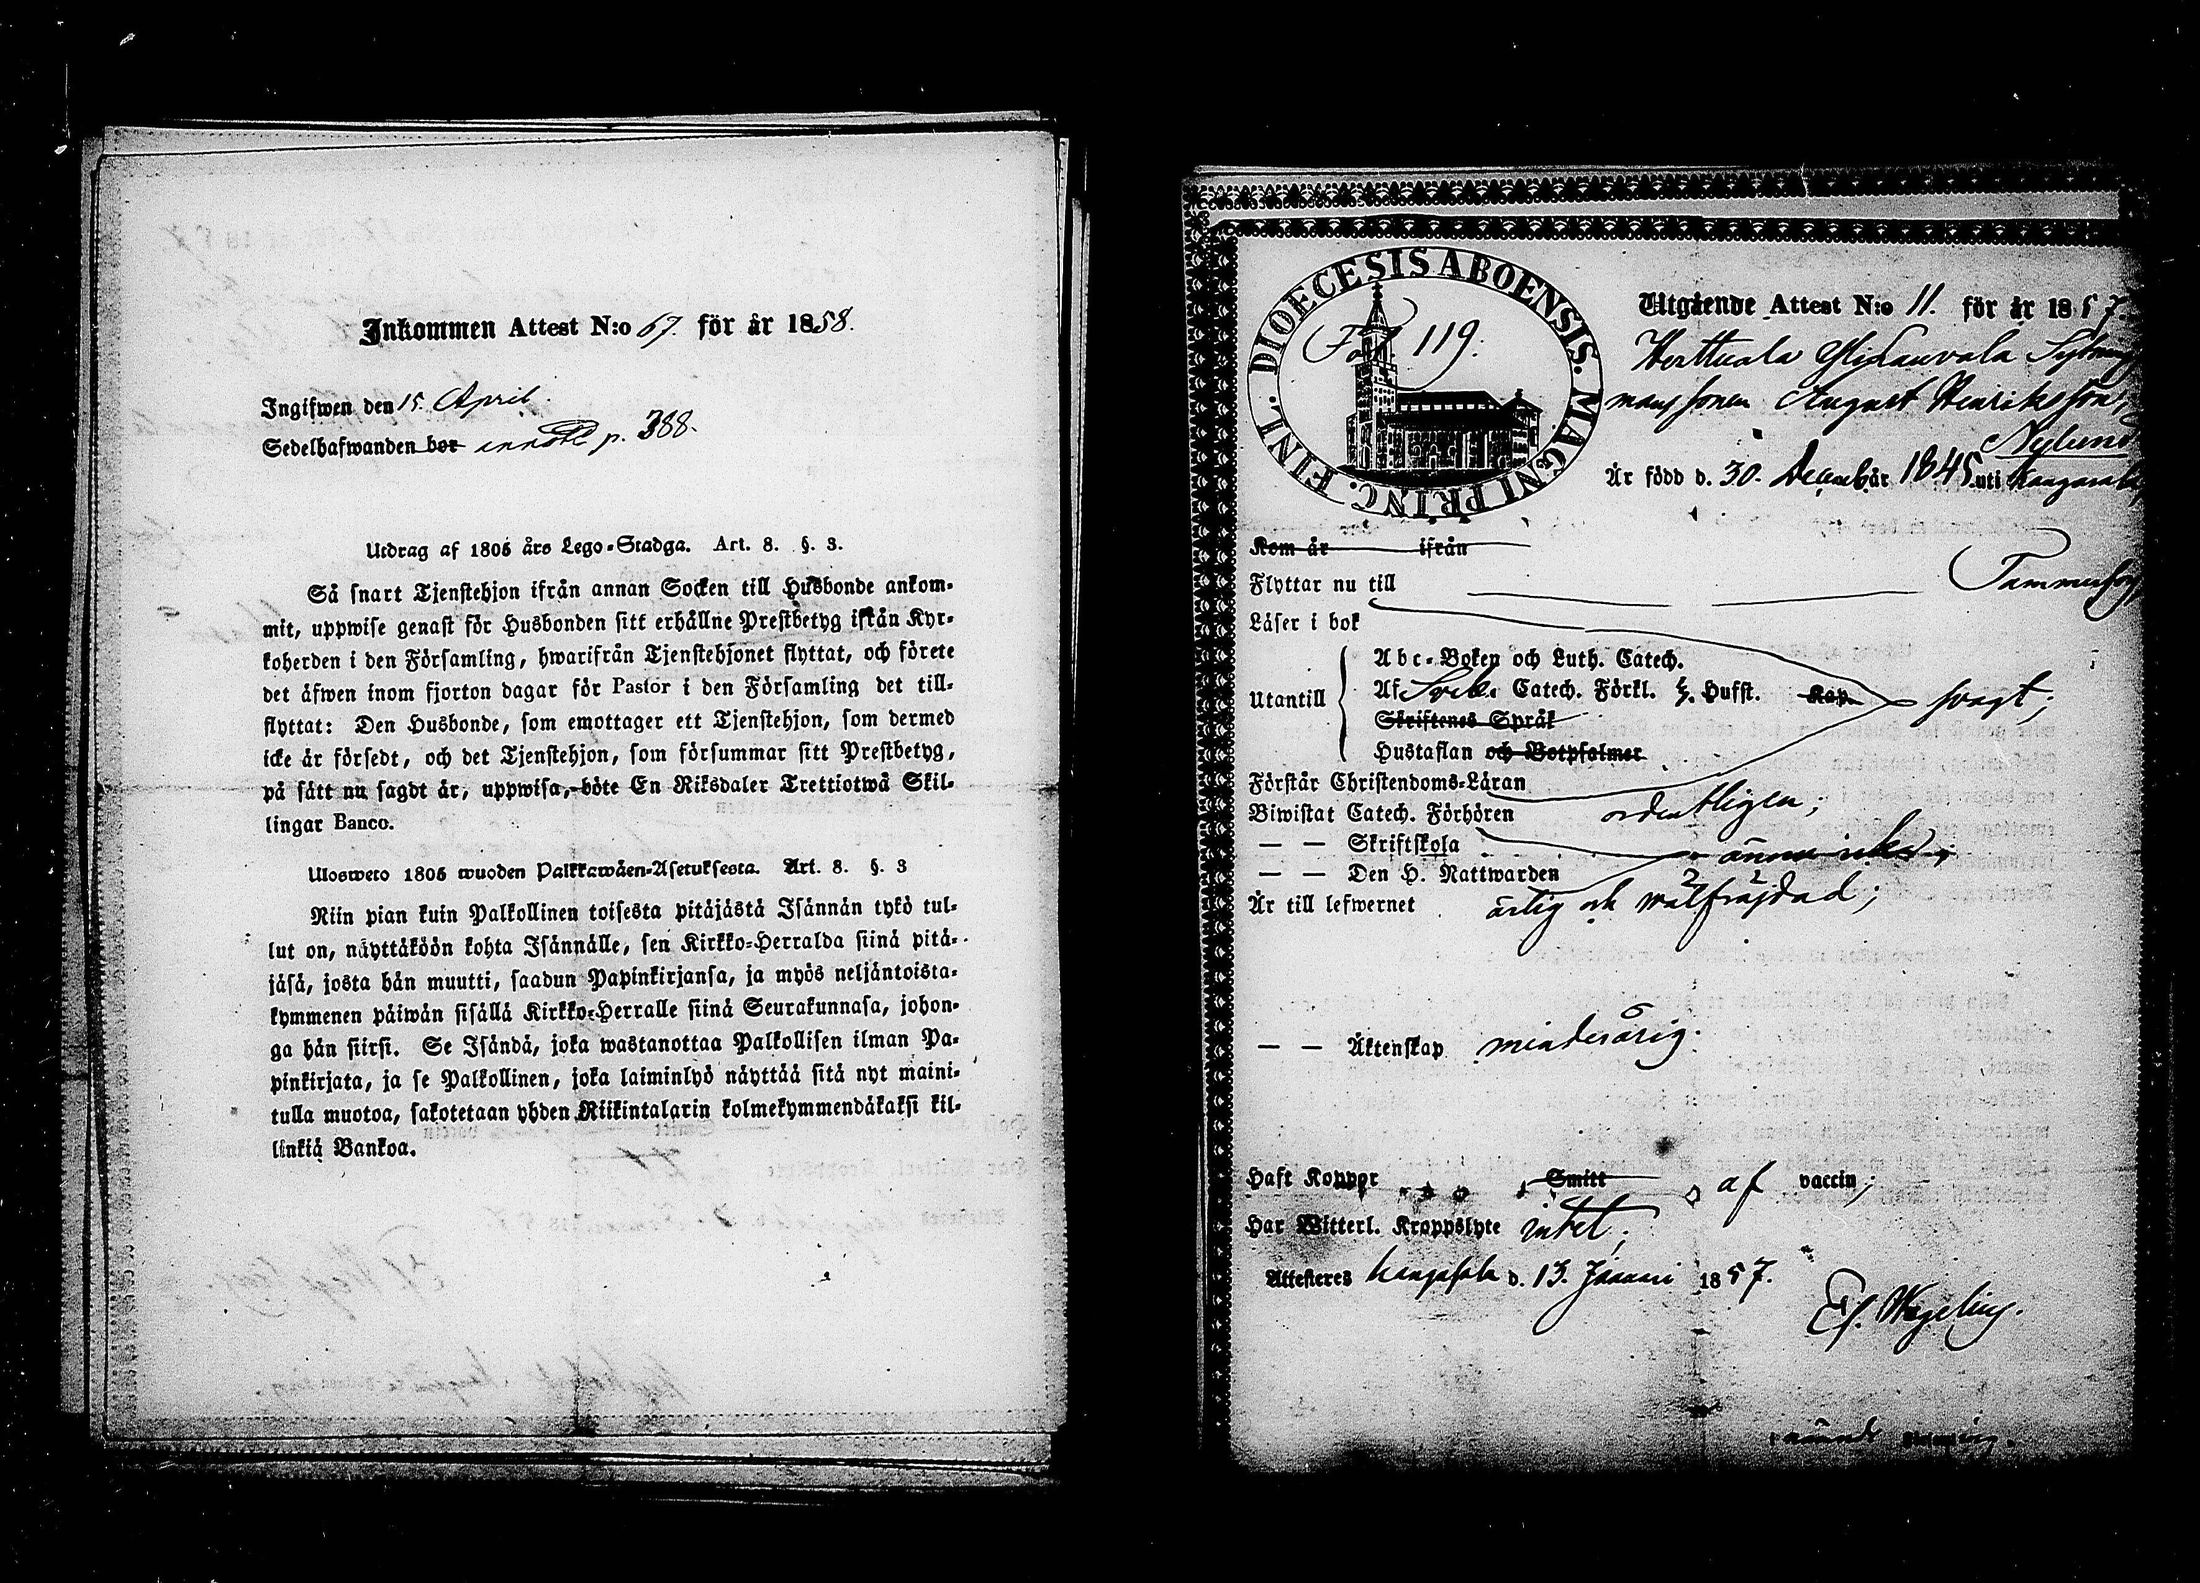 Inkommen Attest N:o 67. för år 1858.
Ingifwen den 15. April.
Sedelhafwanden bor p. 388.
Utdrag af 1805 års Lego-Stadga. Art. 8. §. 3.
Så snart Tjenstehjon ifrån annan Socken till Husbonde ankom-
mit, uppwise genast för Husbonden sitt erhållne Prestbetyg ifrån Kyr-
koherden i den Församling, hwarifrån Tjenstehjonet flyttat, och förete
det äfwen inom fjorton dagar för Pastor i den Församling det till-
flyttat: Den Husbonde, som emottager ett Tjenstehjon, som dermed
icke är försedt, och det Tjenstehjon, som försummar sitt Prestbetyg,
på sätt nu sagdt är, uppwisa, böte En Riksdaler Trettiotwå Skil-
lingar Banco.
Ulosweto 1805 wuoden Palkkawäen-Asetuksesta. Art. 8. §. 3
Niin pian kuin Palkollinen toisesta pitäjästä Isännän tykö tul-
lut on, näyttäköön kohta Isännälle, sen Kirkko-Herralda siinä pitä-
jäsä, josta hän muutti, saadun Papinkirjansa, ja myös neljäntoista-
kymmenen päiwän sisällä Kirkko-Herralle siinä Seurakunnasa, johon-
ga hän siirsi. Se Isändä, joka wastanottaa Palkollisen ilman Pa-
pinkirjata, ja se Palkollinen, joka laiminlyö näyttää sitä nyt maini-
tulla muotoa, sakotetaan yhden Riikintalarin kolmekymmendäkaksi kil-
linkiä Bankoa.
DIOECESIS ABOENSIS. MAGNI PRINC. FINL.
Fol 119.
Utgående Attest N:o 11. för år 1857.
Herttuala
August Henriksson,
Nylund
Är född d. 30. December 1845 uti Kangasala
Kom år ifrån
Flyttar nu till Tammerfors
Läser i bok
Utantill
Abc-Boken och Luth. Catech.
Af Sveb. Catech. Förkl. Hufst. Kap. svagt;
Skriftenes Språk
Hustaflan och Botpsalmer
Förstår Christendoms-Läran
Biwistat Catech. Förhören ordentligen;
— — Skriftskola
— — Den H. Nattwarden ännu icke;
Är till lefwernet ärlig och wälfräjdad;
— — Äktenskap minderårig.
Haft Koppor Smitt af vaccin;
Har Witterl. Kroppslyte intet;
Attesteres Kangasala d. 13. Januari 1857.
Ef. Wegelius.